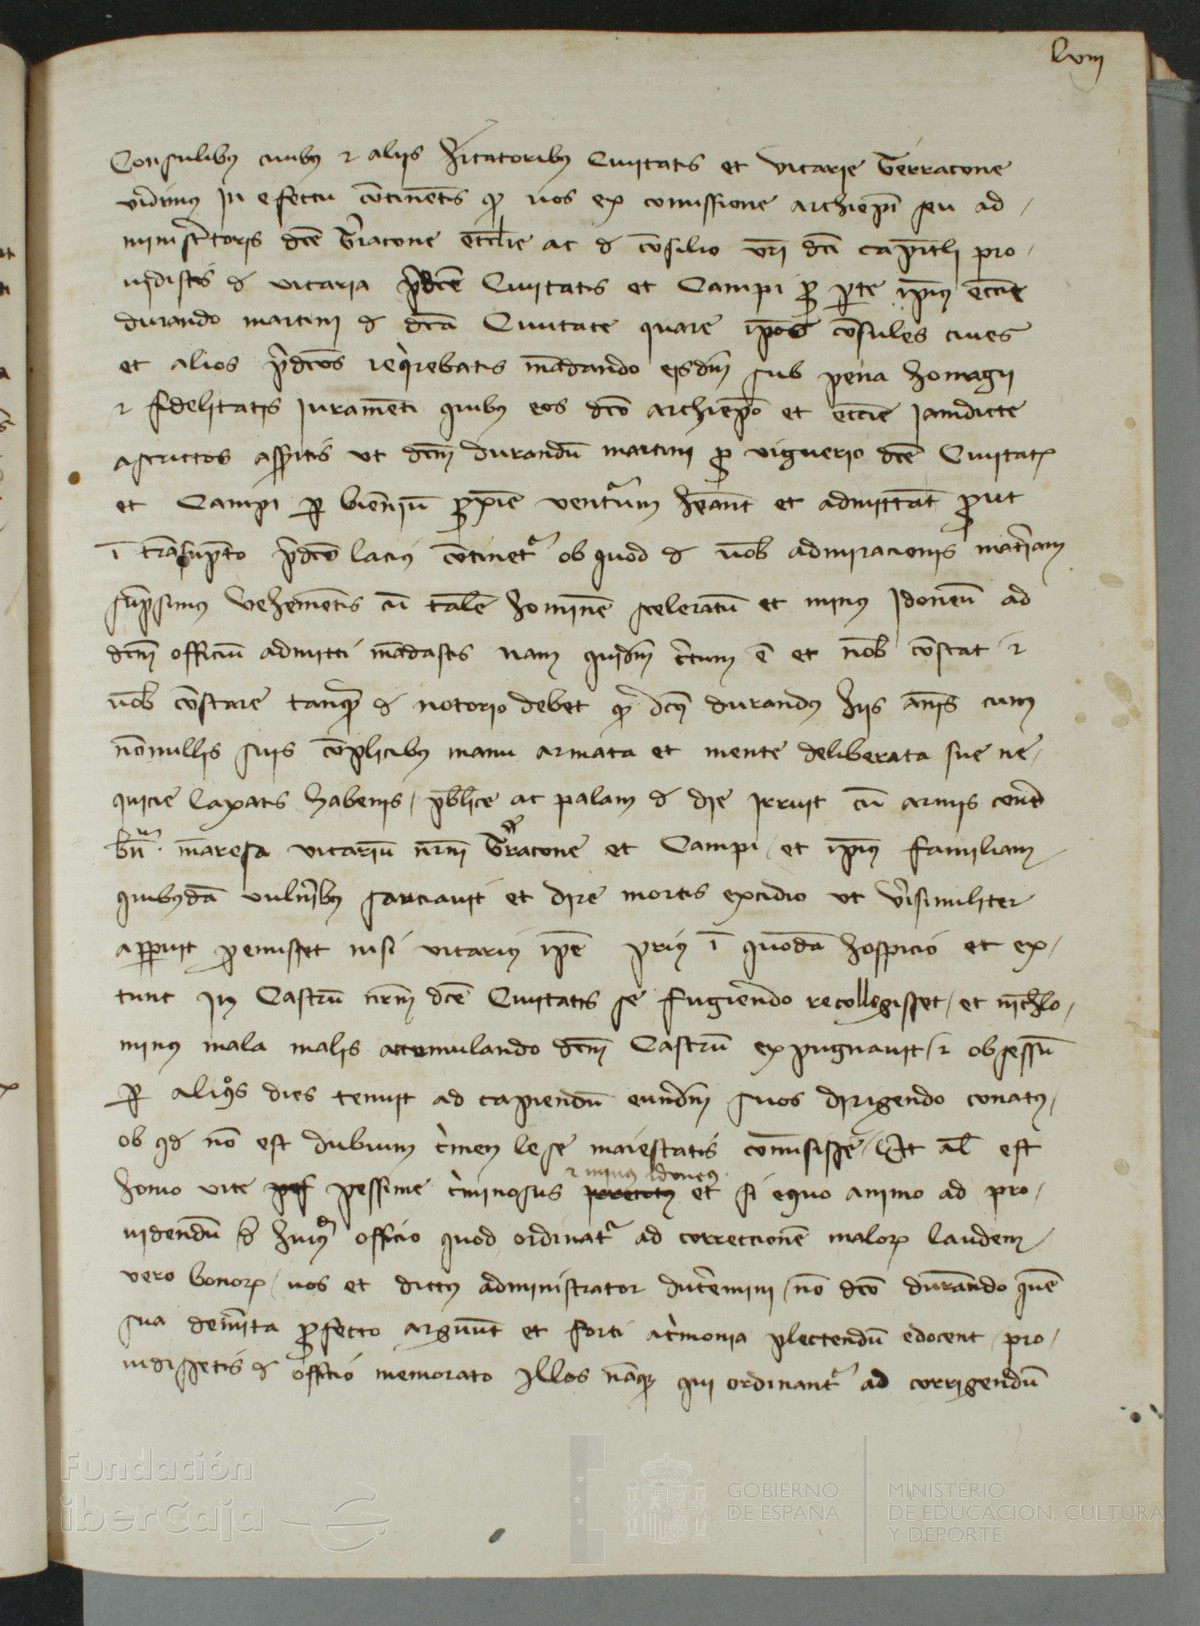 lviij
Consulibus ciuibus et aliis hitatoribus Ciuitatis et vicarie Terracone
vidimus in efectu continentis quod vos ex comissione archiepi seu ad
ministratoris dce Tiracone ecclie ac de consilio vri dci capituli pro
uidistis de vicaria predce Ciuitatis et Campi pro parte ipius eccie
durando martini de dca Ciuitate quare ipos consules ciues
et alios predcos requirebatis mandando eisdem sub pena homagii
et fidelitatis iuramenti quibus eos dco archiepo et eccie iamdicte
astrictos asseritis ut dcm durandum martini pro viguerio dce Ciuitatis
et Campi per biennium proxime venturum heant et admittant prout
in transupto predco lacius continetur ob quod de vobis admiracionis materiam
sumpsimus vehementis cum talem hominem sceleratum et minus idoneum ad
dcm officium admitti mandastis nam quidem certum est et nobis constat et
vobis constare tanquam de notorio debet quod dcus durandus hiis annis cum
nonnullis suis complicibus manu armata et mente deliberata sue ne
quicie laxatis habenis publice ac palam de die irruit cum armis contra
bn maresa vicarium nrm Terracone et Campi et ipius familiam
quibusdam vulneribus sauciauit et dire mortis excidio ut verisimiliter
apparuit peruisset nisi vicarius ipe prius in quodam hospicio et ex
tunc in Castrum nrm dce Ciuitatis se fugiendo recollegisset et nichilo
minus mala malis accumulando dcm Castrum expugnauit et obsessum
per aliquos dies tenuit ad capiendum eundem suos dirigendo conatus
ob quod non est dubium crimen lese maiestatis comisisse Et al est
homo vite pessime criminosus et minus idoneus et si equo animo ad pro
uidendum de huiusmodi officio quod ordinatur ad correccionem malorum laudem
vero bonorum vos et dictus administrator duceremini non dco durando quem
sua demerita profecto arguunt et forti acrimonia plectendum edocent pro
uidissetis de officio memorato Illos namque qui ordinantur ad corrigendum
Fundación
iberCaja
GOBIERNO
DE ESPAÑA
MINISTERIO
DE EDUCACIÓN, CULTURA
Y DEPORTE